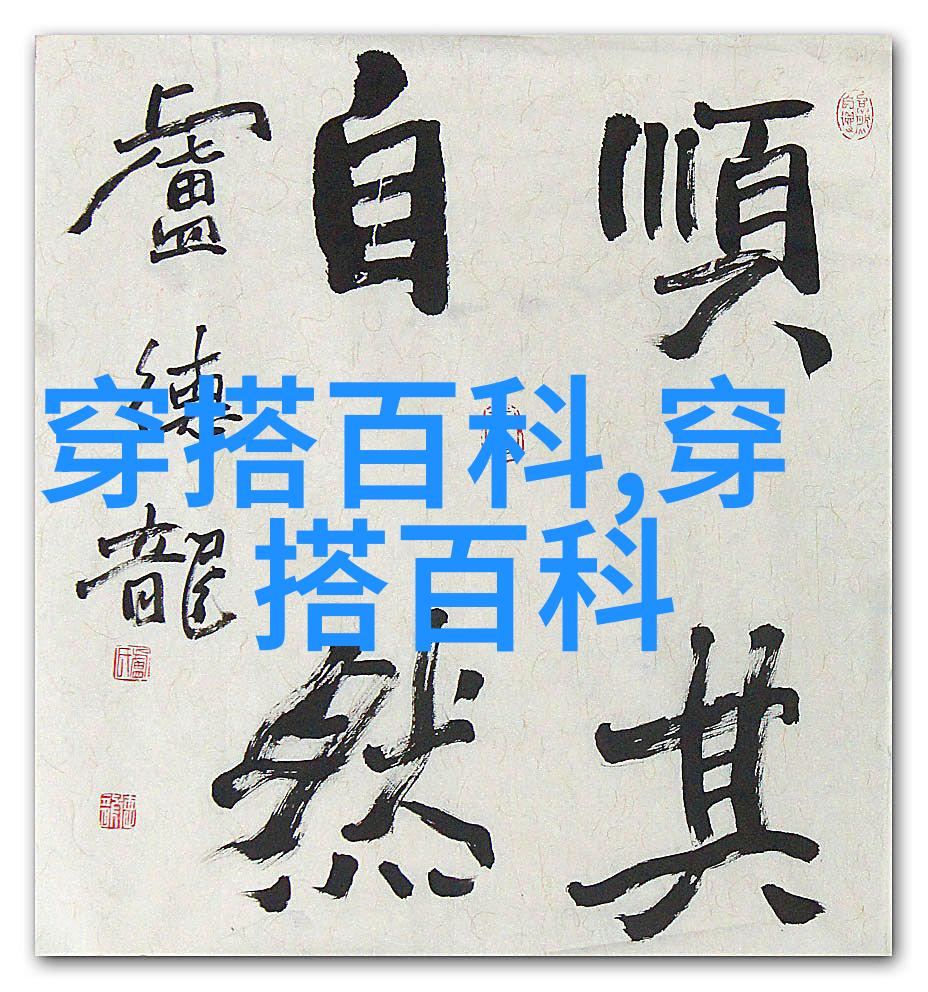 順其
自然
盧德龍
穿搭百科,穿
搭百科